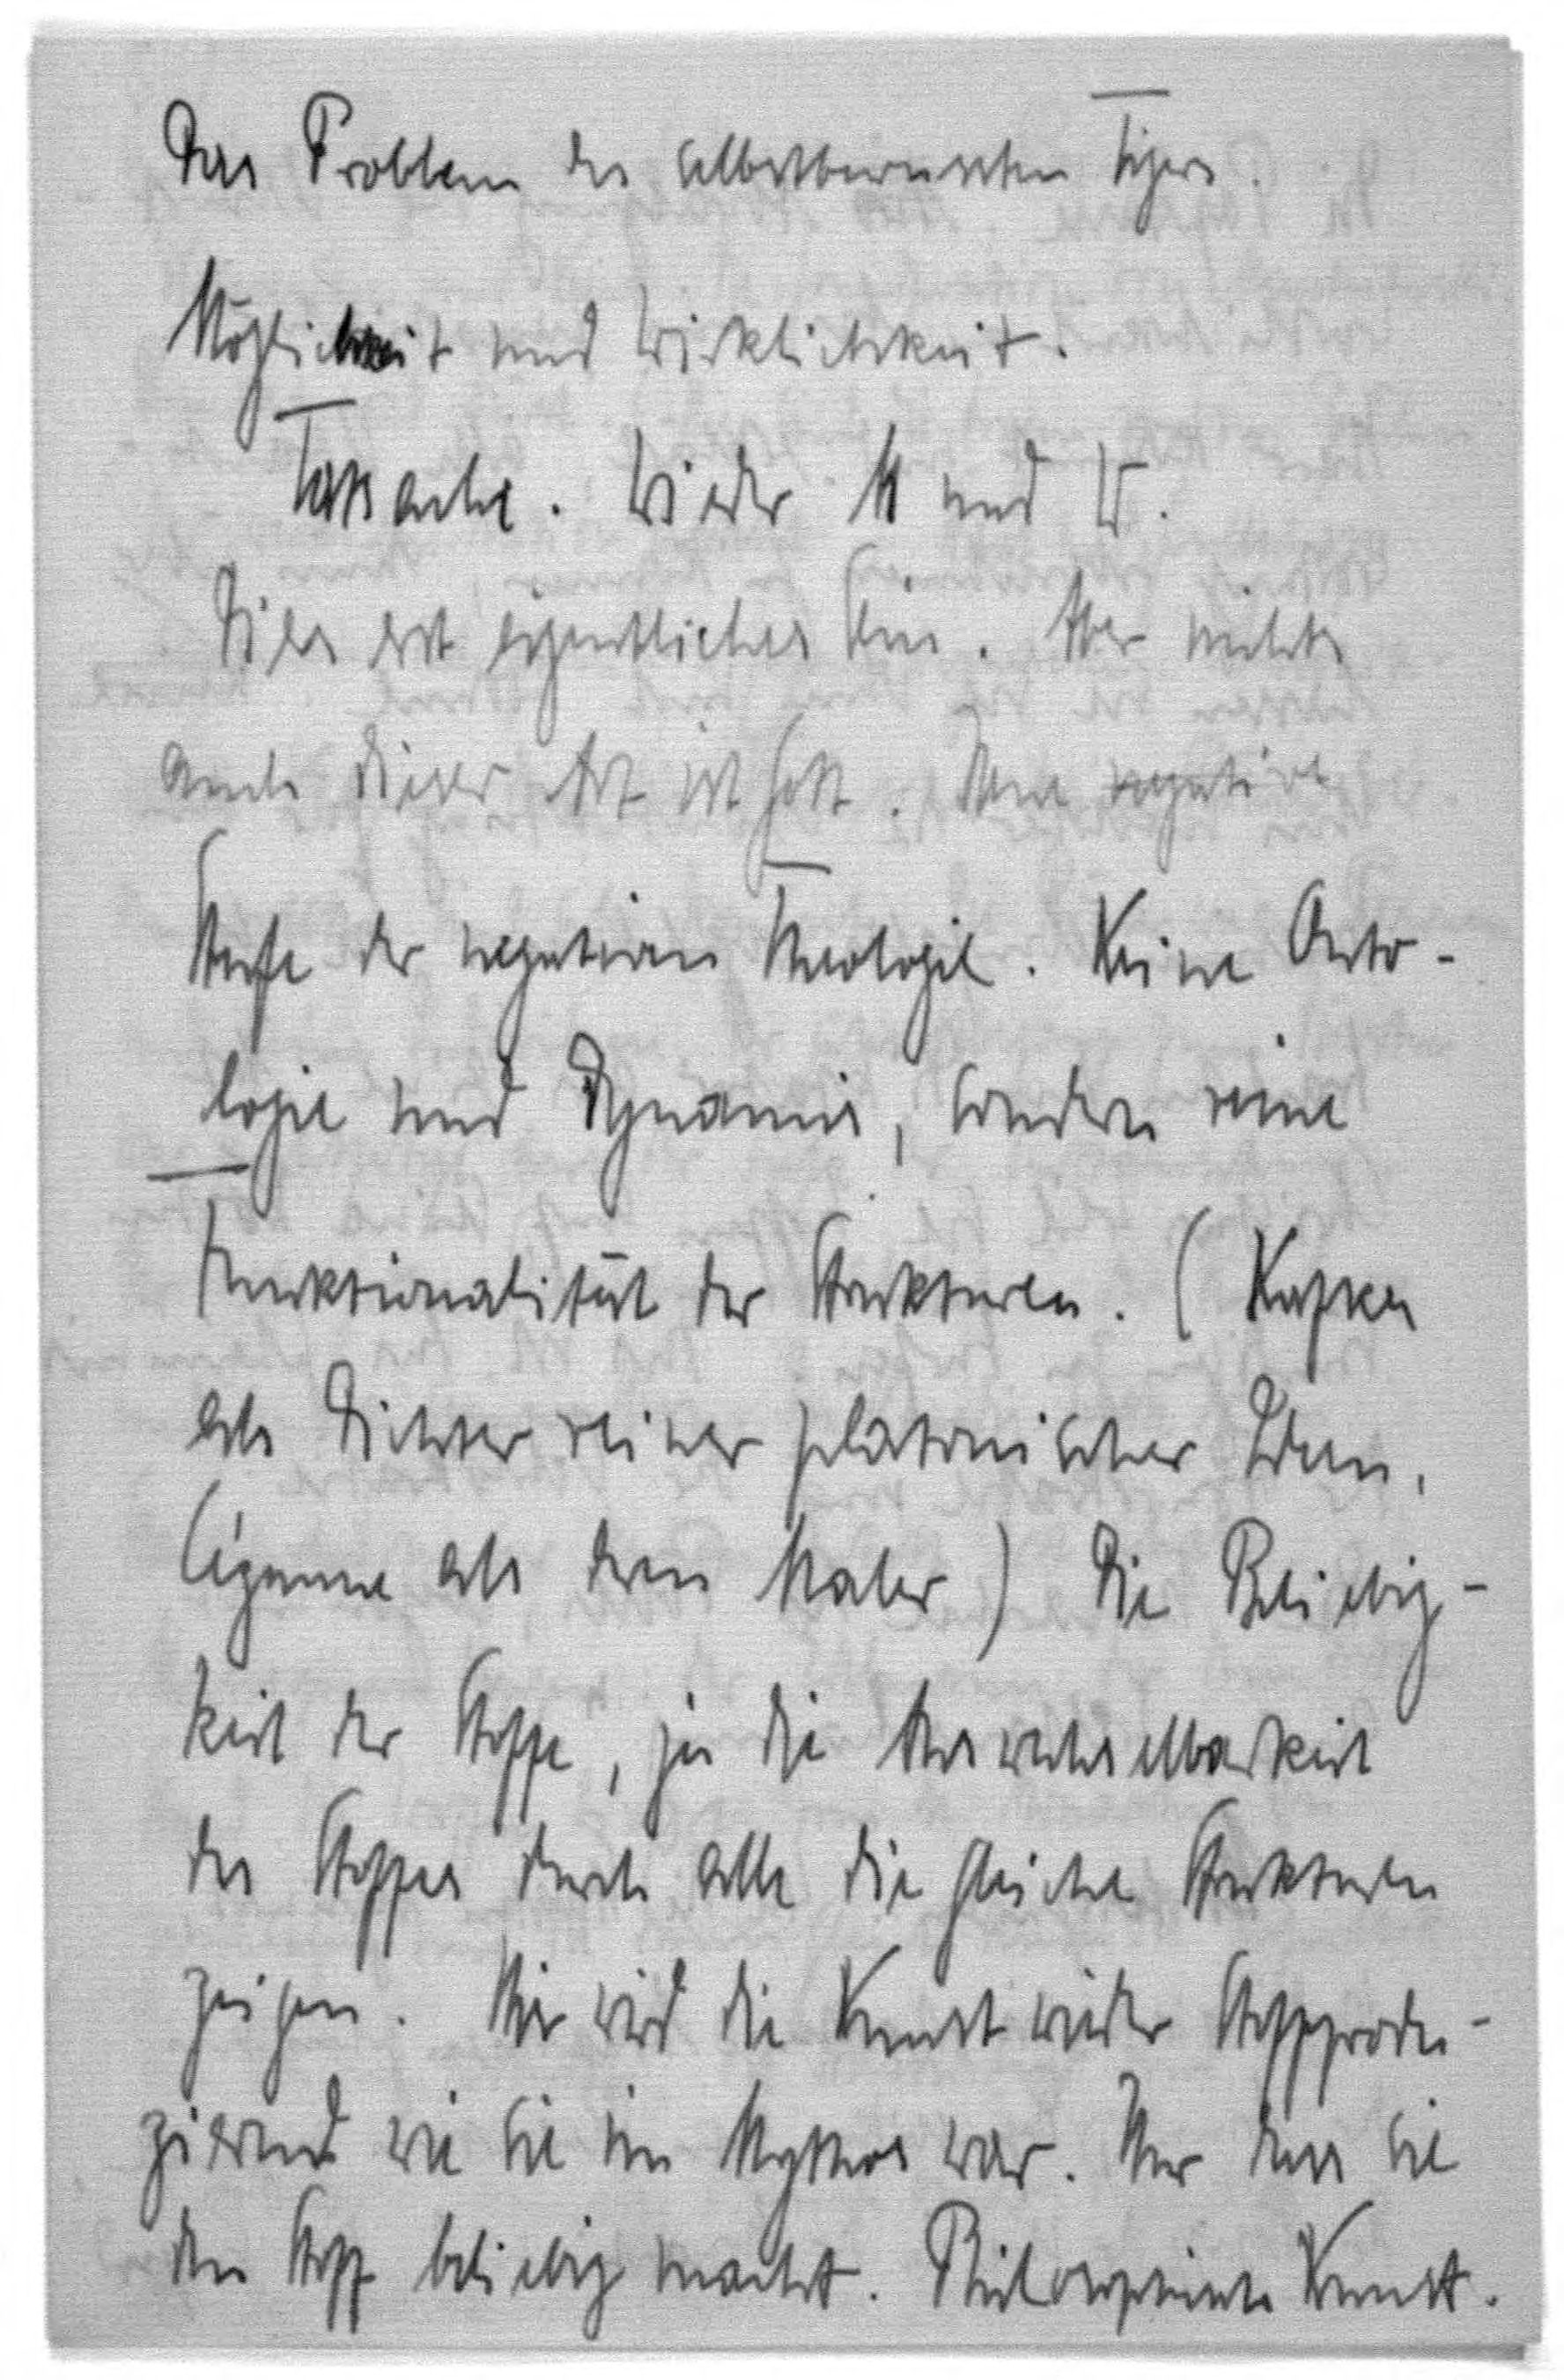 Das Problem des selbstbewussten Tigers.
Möglichkeit und Wirklichkeit.
Tatsache. Wieder M und W.
Dies erst eigentliches Sein. Aber nichts
auch dieser Art ist Gott. Neue negative
Stufe der negativen Theologie. Keine Onto-
logie und Dynamis, sondern reine
Funktionalität der Strukturen. (Kafka
als Dichter reiner platonischer Ideen,
Cézanne als deren Maler) Die Beliebig-
keit der Stoffe, ja die Auswechselbarkeit
des Stoffes durch alle die gleiche Strukturen
zeigen. Hier wird die Kunst wieder Stoffprodu-
zierend wie sie im Mythos war. Nur dass sie
den Stoff beliebig macht. Philosophische Kunst.